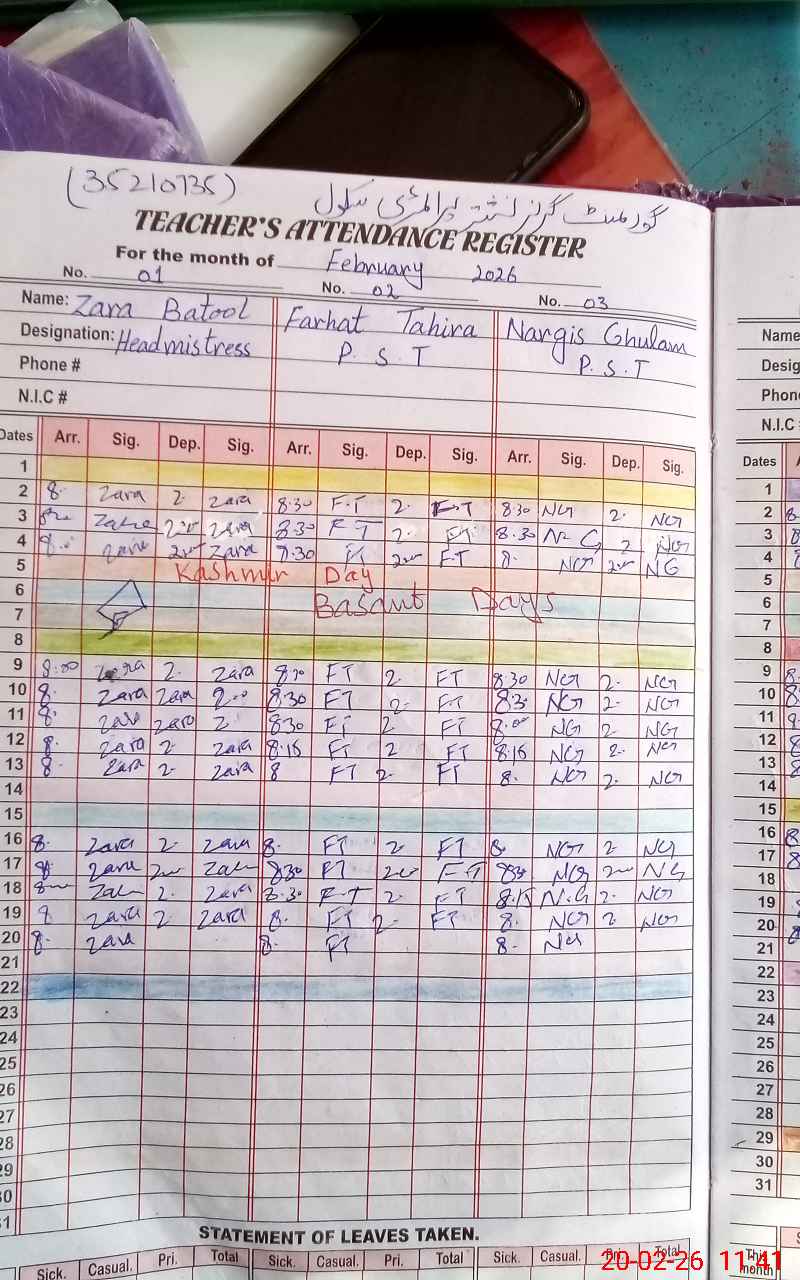 (35210735)
گورمنٹ گرلز پرائمری سکول
TEACHER'S ATTENDANCE REGISTER
For the month of February 2026
No. 01 No. 02 No. 03
Name: Zara Batool Farhat Tahira Nargis Ghulam
Designation: Headmistress P.S.T P.S.T
Phone #
N.I.C #
Dates Arr. Sig. Dep. Sig. Arr. Sig. Dep. Sig. Arr. Sig. Dep. Sig.
1
2 8. Zara 2. Zara 8.30 F.T 2. F.T 8.30 NG 2. NG
3 Zara Zara 8.30 F.T 2. FT 8.30 N G 2 NG
4 8.. Zara Zara F.T 8. NG NG
5 Kashmir Day
6 Basant Days
7
8
9 8:00 Zara 2. Zara 830 FT 2 FT 8.30 NG 2. NG
10 8. Zara Zara 8.30 FT 2. FT 8.3 NG 2. NG
11 8. Zara Zara 2 830 FT 2 FT NG 2 NG
12 8. Zara 2 Zara 8.15 FT 2 FT 8.15 NG 2. NG
13 8. Zara 2. Zara 8 FT 2. FT 8. NG 2. NG
14
15
16 8. Zara 2. Zara 8. FT 2 FT 8. NG 2. NG
17 8. Zara Zara 830 FT FT 830 NG NG
18 Zara 2. Zara 8.30 F.T 2. FT 8.15 N.G 2. NG
19 8 Zara 2 Zara 8. FT 2 FT 8. NG 2 NG
20 8. Zara 8. FT 8. NG
21
22
23
24
25
26
27
28
29
30
31
STATEMENT OF LEAVES TAKEN.
Sick. Casual. Pri. Total Sick. Casual. Pri. Total Sick. Casual. Pri. Total
20-02-26 11:41
Name
Desig
Phone
N.I.C
Dates
1
2 8
3
4
5
6
7
8
9 8
10
11
12 8
13
14
15
16 8
17 8
18
19 8
20
21
22
23
24
25
26
27
28
29
30
31
This
month